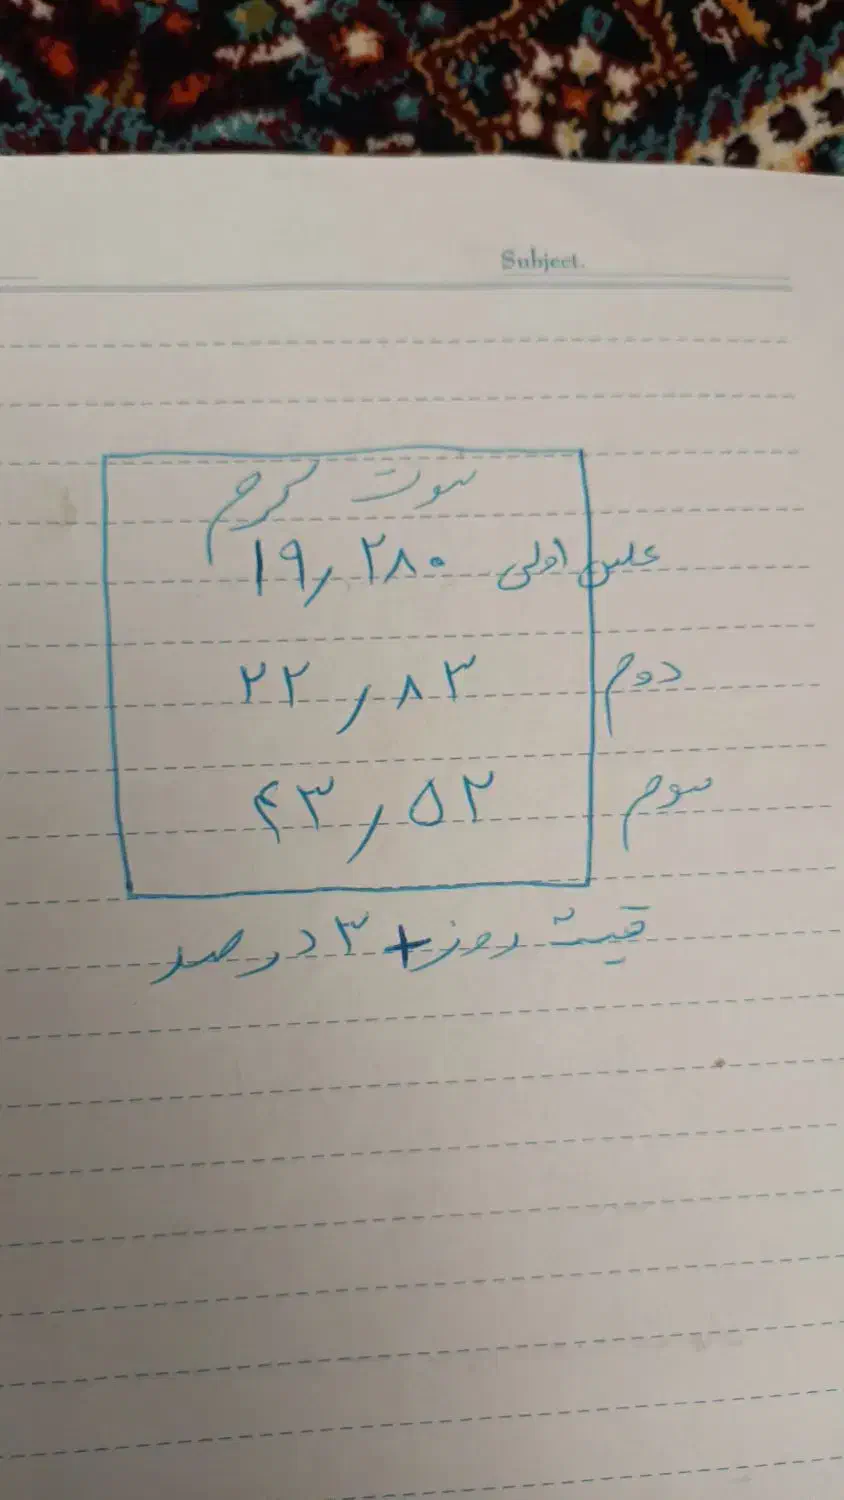 Subject.
سوت گرم
عکس اولی ۱۹٫۲۸۰
دوم ۲۲٫۸۳
سوم ۴۳٫۵۲
قیمت روز + ۳ درصد